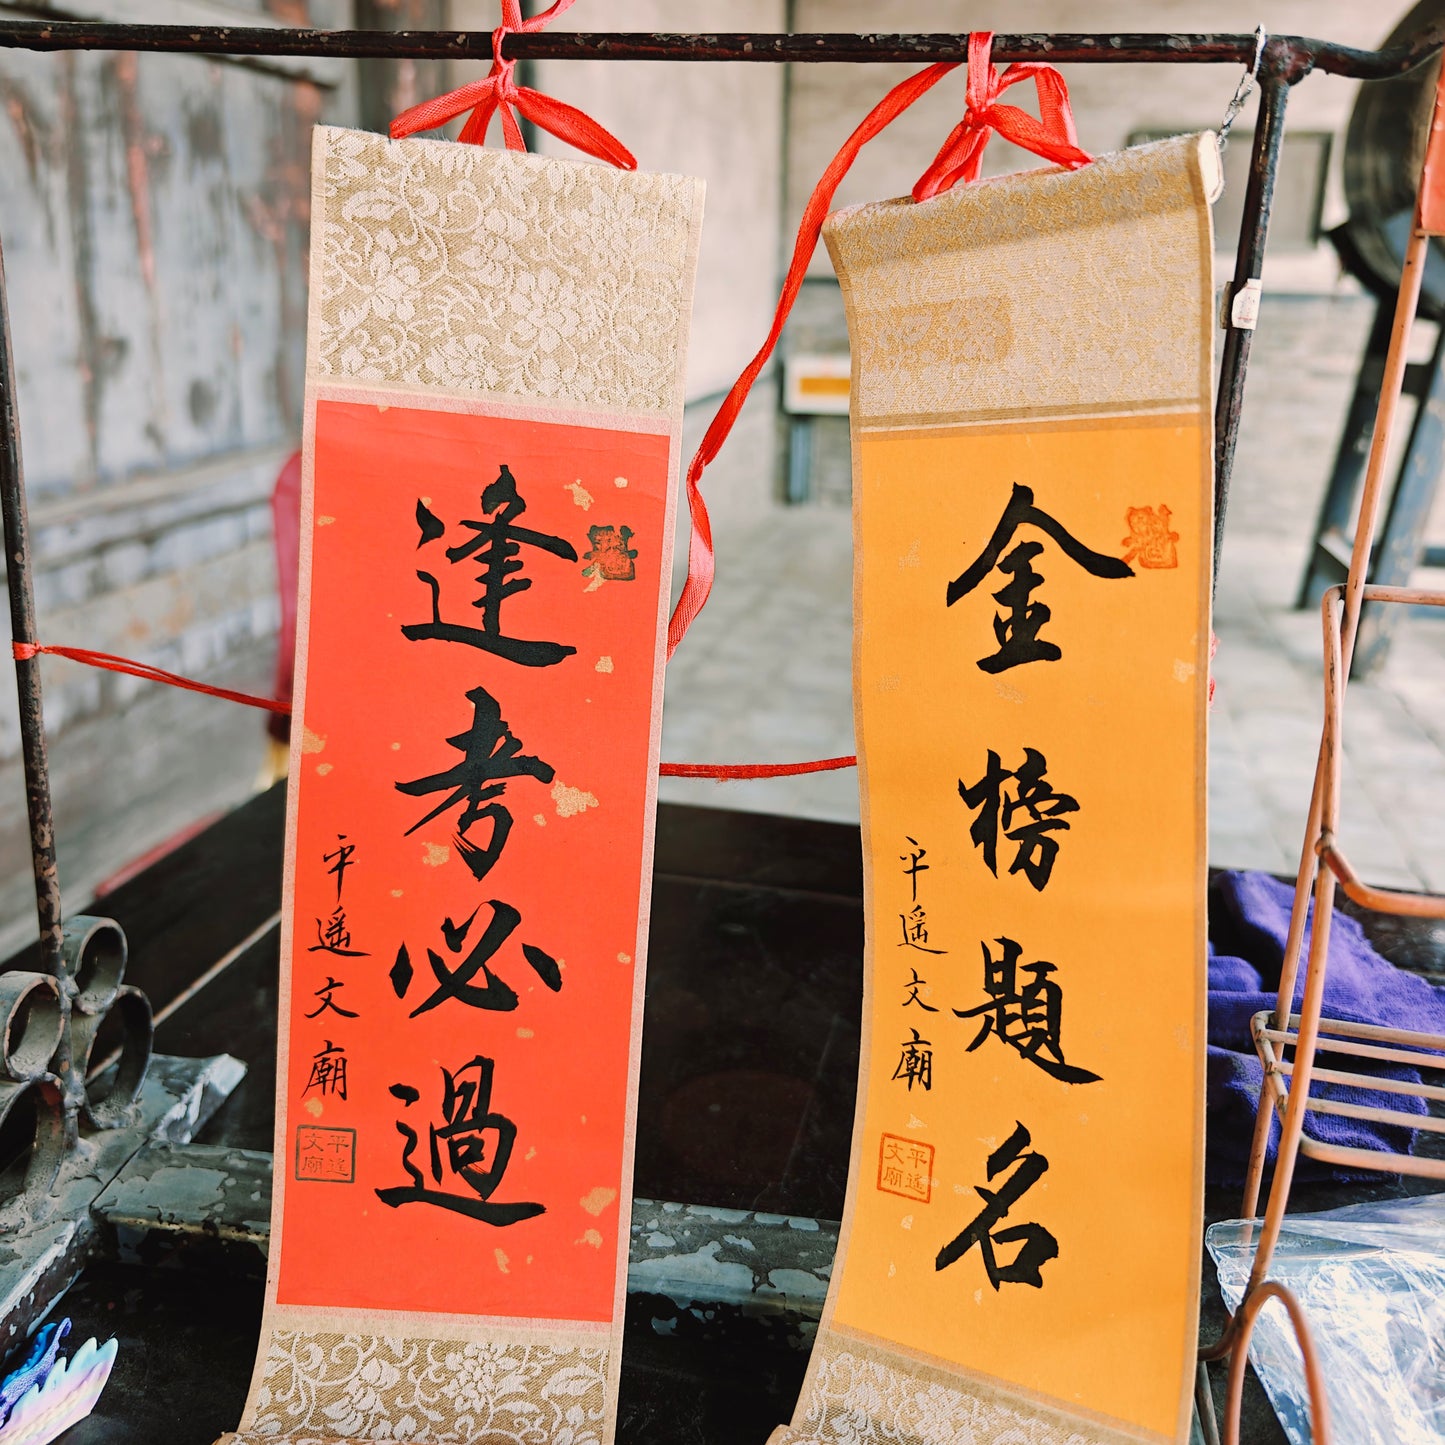 逢考必過
平遥文廟
平遥文廟
金榜題名
平遥文廟
平遥文廟